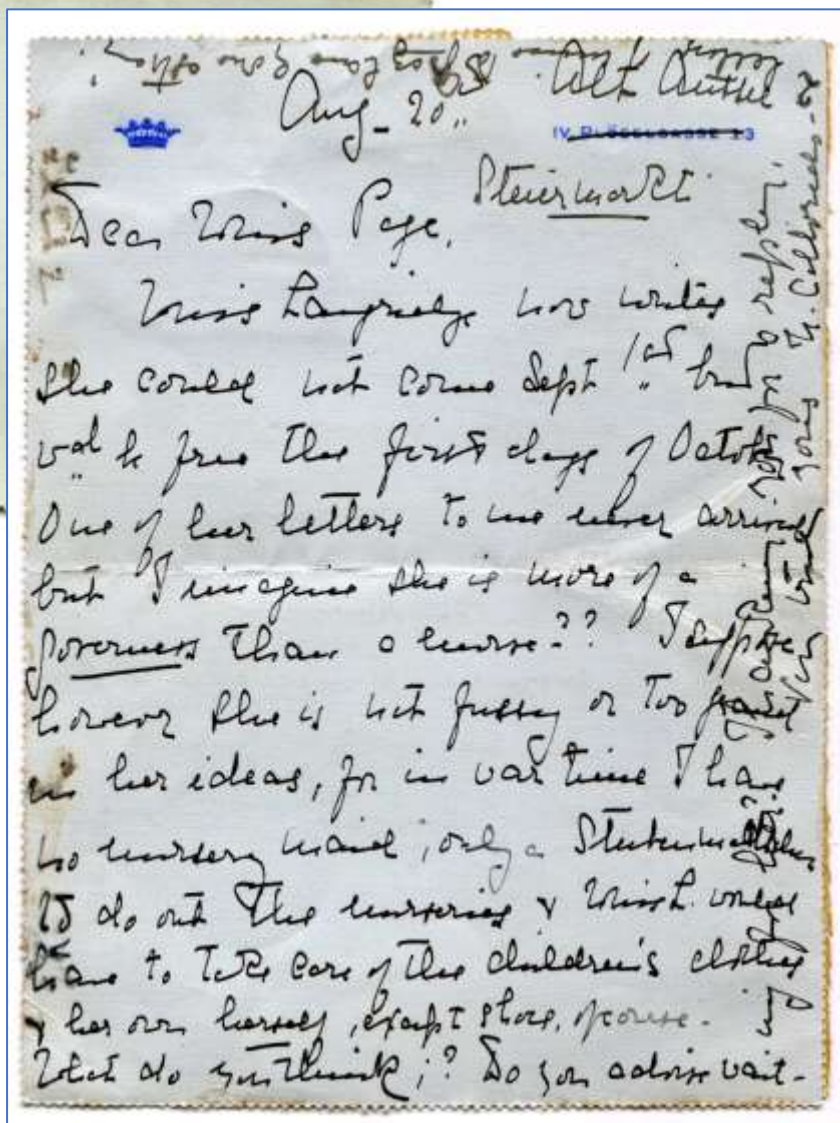 Aug. 20.. Alt Aussee
IV. PLÖSSLGASSE 13
Steiermark
Dear Miss Page,
Miss Langridge now writes
she could not come Sept 1st but
wd be free the first days of Octob
One of her letters to me never arrived
but I imagine she is more of a
governess than a nurse?? I suppose
however she is not fussy or too grand
in her ideas, for in war time I have
no nursery maid, only a Stubenmädchen
to do out the nurseries & Miss L. would
have to take care of the children's clothes
& her own herself, except shoes, of course.
What do you think? Do you advise wait-
ing
for a reply.
yours